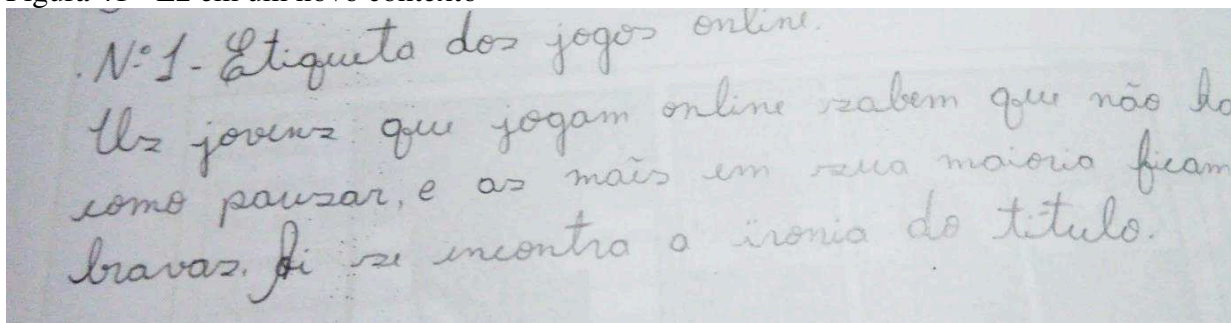 Figura 41 - E2 em um novo contexto
.Nº1 - Etiqueta dos jogos online.
Us jovens que jogam online sabem que não há
como pausar, e as mães em sua maioria ficam
bravas. Ai se encontra a ironia do título.